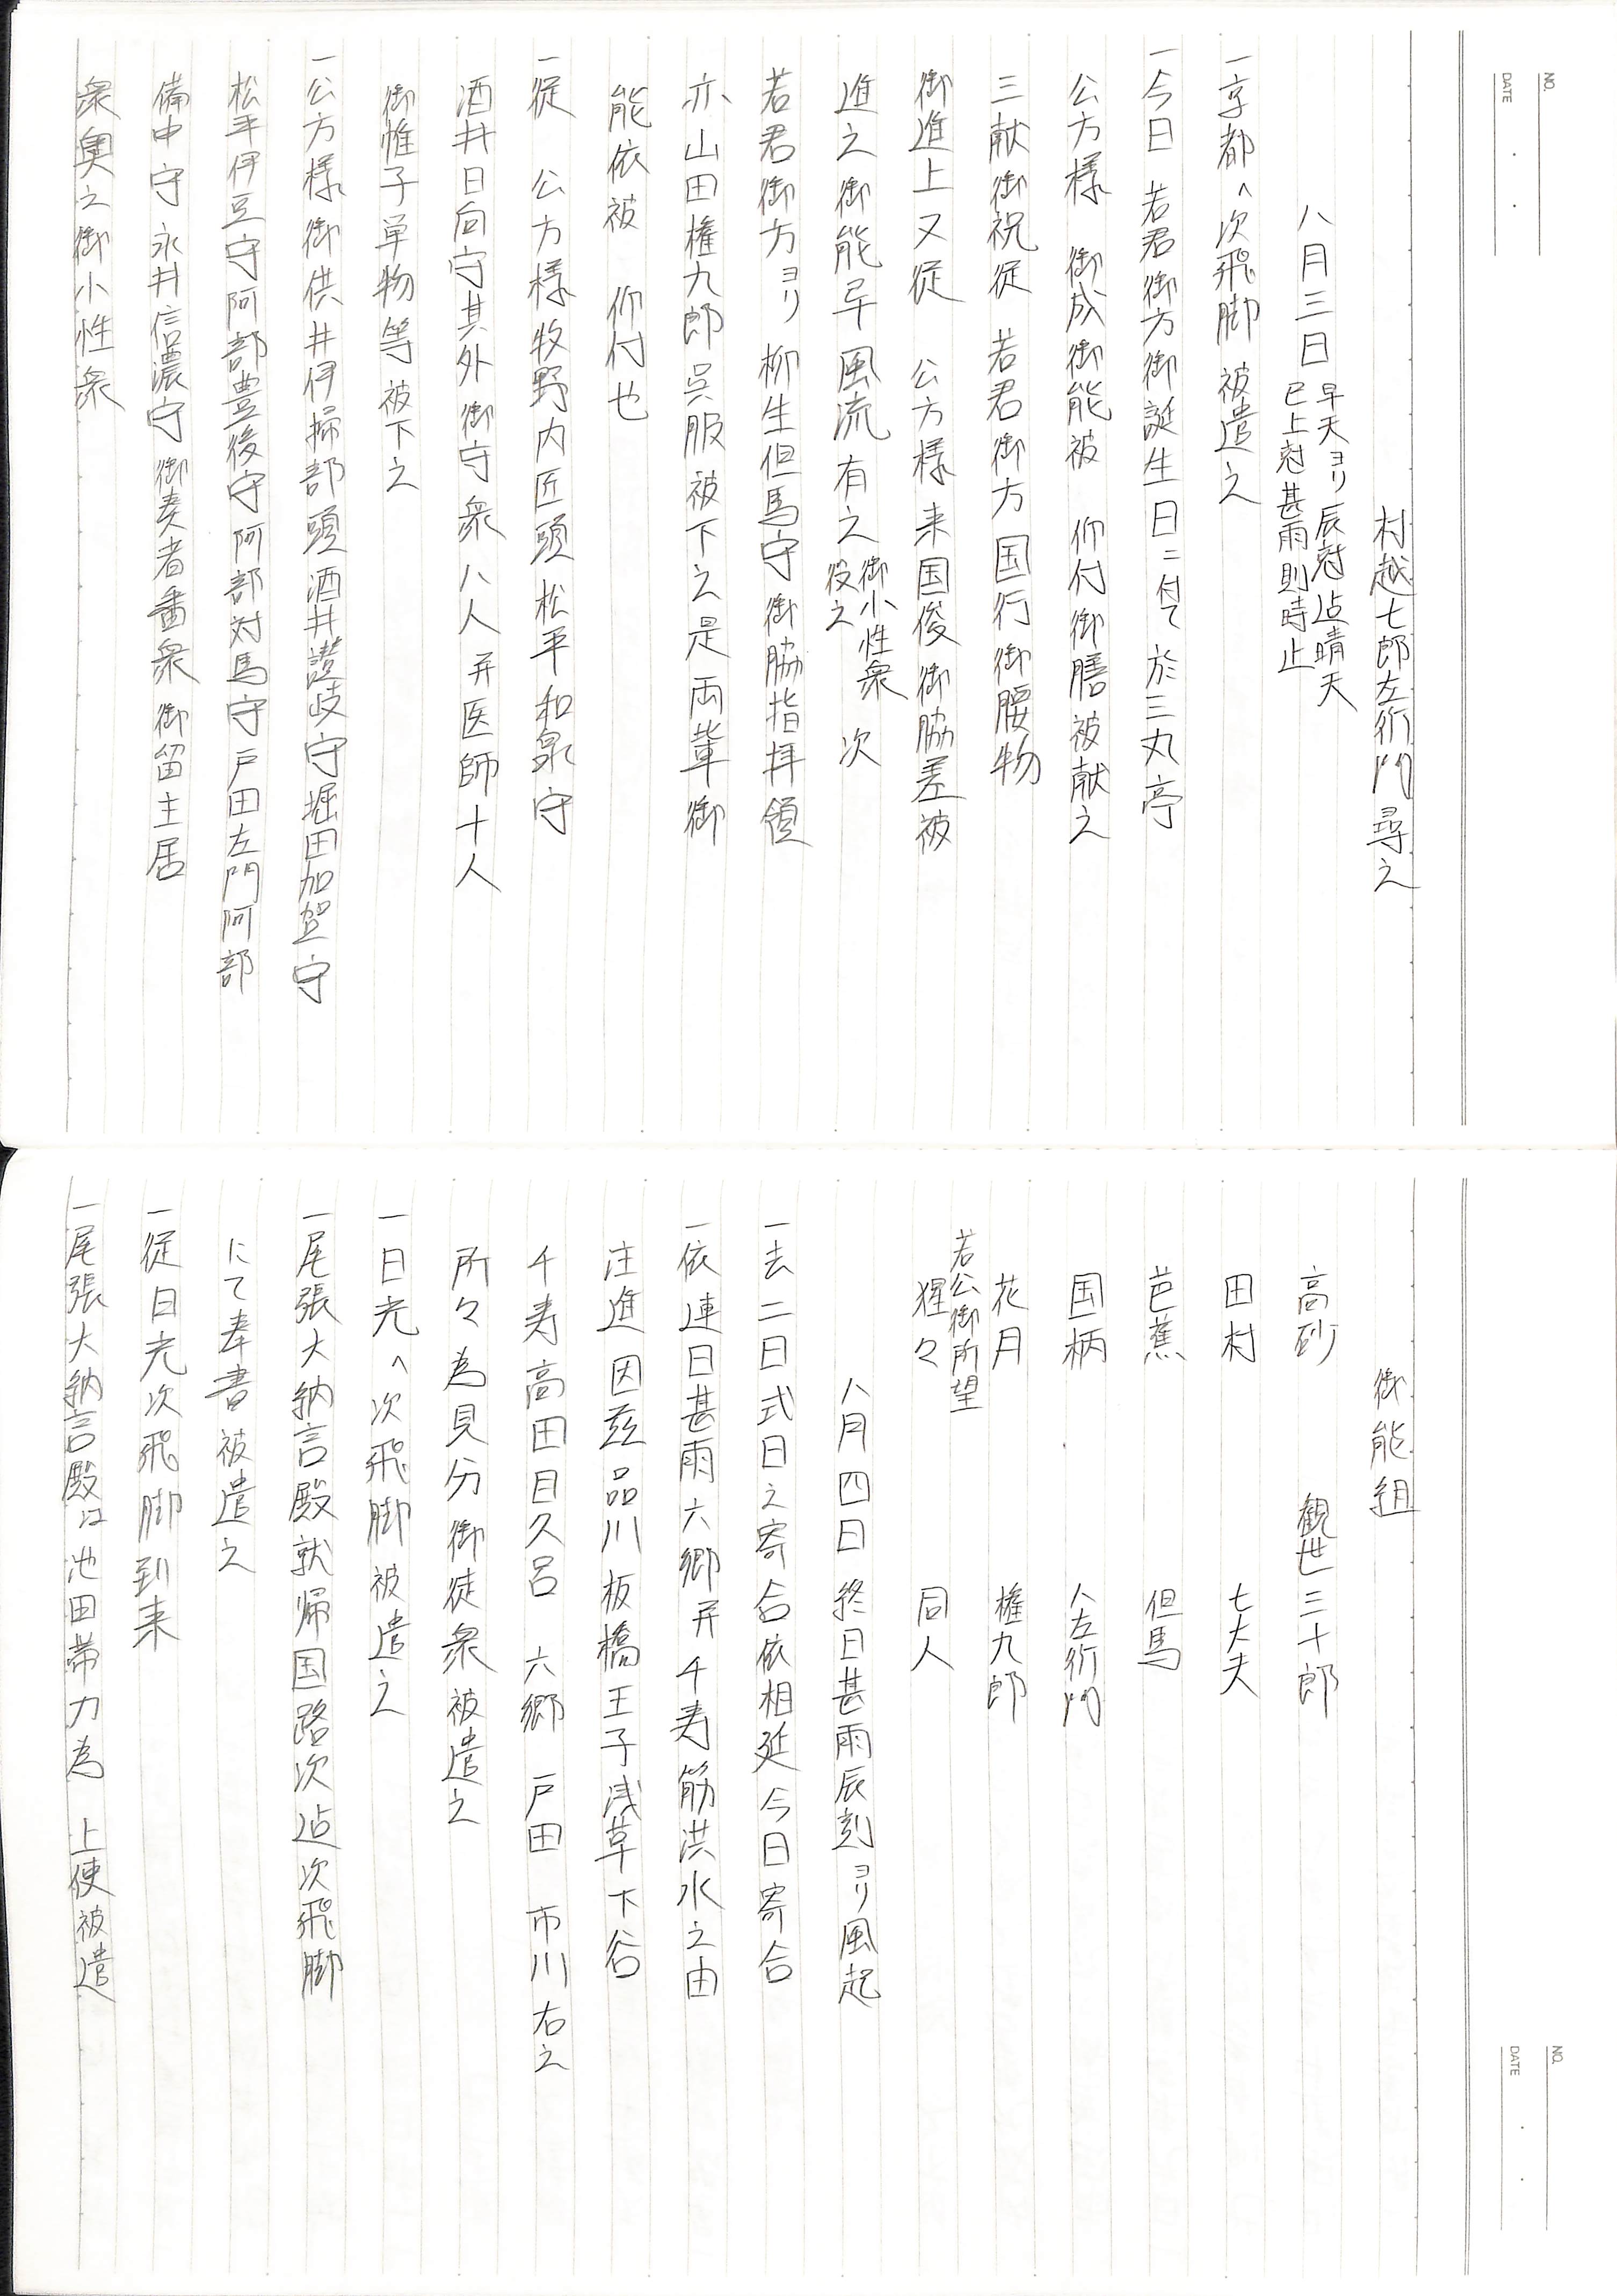 NO.
DATE
村越七郎左衛門尋之
八月三日 早天ヨリ辰刻迠晴天
巳上刻甚雨則時止
一京都へ次飛脚被遣之
一今日 若君御方御誕生日ニ付て 於三丸亭
公方様 御成御能被 仰付御膳被献之
三献御祝従 若君御方国行御腰物
御進上又従 公方様来国俊御脇差被
進之御能畢風流有之 御小性衆
役之 次
若君御方ヨリ柳生但馬守御脇指拝領
亦山田権九郎呉服被下之是両輩御
能依被 仰付也
一従 公方様牧野内匠頭松平和泉守
酒井日向守其外御守衆八人并医師十人
御惟子単物等被下之
一公方様御供井伊掃部頭酒井讃岐守堀田加賀守
松平伊豆守阿部豊後守阿部対馬守戸田左門阿部
備中守永井信濃守御奏者番衆御留主居
衆奥之御小性衆
NO.
DATE
御能組
高砂 観世三十郎
田村 七大夫
芭蕉 但馬
国柄 八左衛門
花月 権九郎
若公御所望
猩々 同人
八月四日 終日甚雨辰刻ヨリ風起
一去二日式日之寄合依相延今日寄合
一依連日甚雨六郷并千寿筋洪水之由
注進因茲品川板橋王子浅草下谷
千寿高田目久呂 六郷 戸田 市川 右之
所々為見分御徒衆被遣之
一日光へ次飛脚被遣之
一尾張大納言殿就帰国路次迠次飛脚
にて奉書被遣之
一従日光次飛脚到来
一尾張大納言殿江池田帯刀為 上使被遣